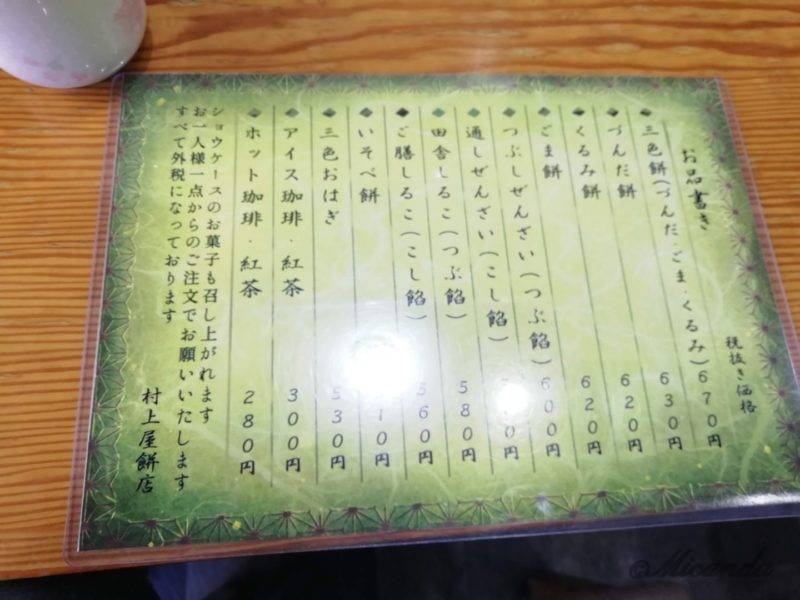 お品書き
税抜き価格
◆三色餅(づんだ・ごま・くるみ)670円
◆づんだ餅 630円
◆くるみ餅 620円
◆ごま餅 620円
◆つぶしぜんざい(つぶ餡)600円
◆通しぜんざい(こし餡)
◆田舎しるこ(つぶ餡)580円
◆ご膳しるこ(こし餡)560円
◆いそべ餅
◆三色おはぎ 530円
◆アイス珈琲・紅茶 300円
◆ホット珈琲・紅茶 280円
ショウケースのお菓子も召し上がれます
お一人様一点からのご注文でお願いいたします
すべて外税になっております
村上屋餅店
@Micanda